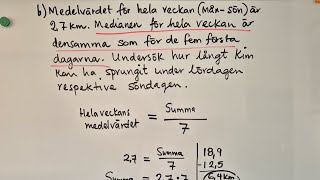 b) Medelvärdet för hela veckan (mån-sön) är
2,7 km. Medianen för hela veckan är
densamma som för de fem första
dagarna. Undersök hur långt Kim
kan ha sprungit under lördagen
respektive söndagen.
Hela veckans medelvärdet = Summa / 7
2,7 = Summa / 7
18,9
-12,5
Summa = 2,7 · 7
6,4 km